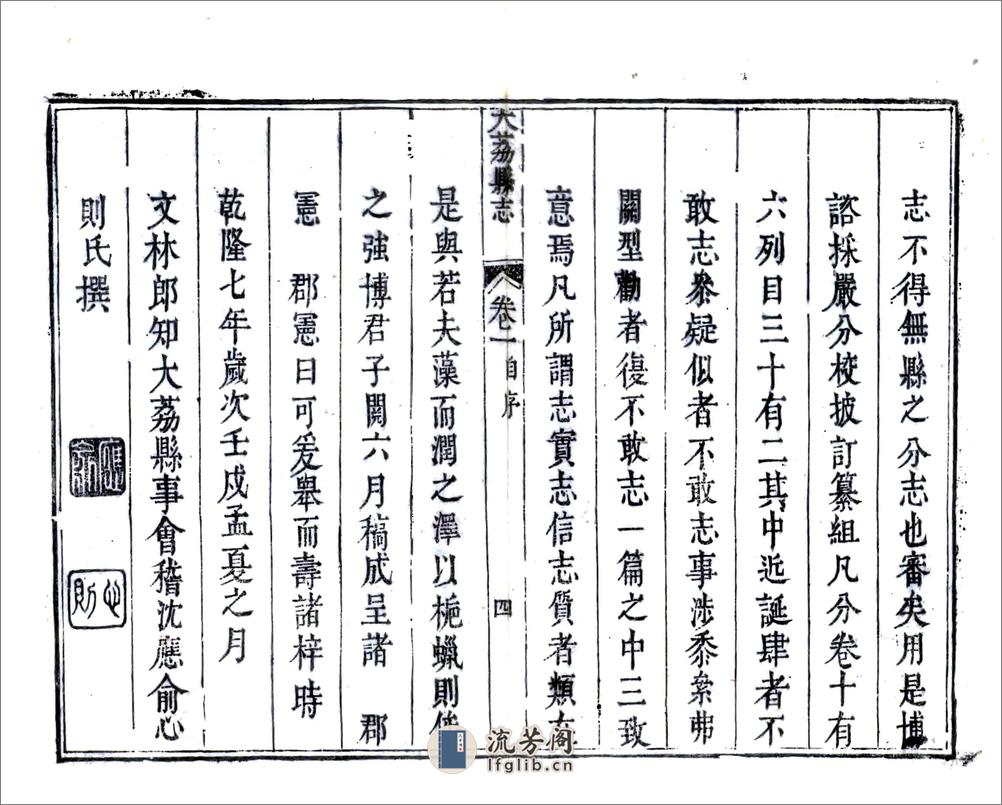 志不得無縣之分志也審矣用是博
諮採嚴分校披訂纂組凡分卷十有
六列目三十有二其中近誕肆者不
敢志叅疑似者不敢志事涉黍絫弗
關型勸者復不敢志一篇之中三致
意焉凡所謂志實志信志質者類在
大荔縣志
卷一
自序
四
是與若夫藻而潤之澤以梔蠟則俟
之強博君子閱六月稿成呈諸 郡
憲 郡憲曰可爰舉而壽諸梓時
乾隆七年歲次壬戌孟夏之月
文林郎知大荔縣事會稽沈應俞心
則氏撰
心則
流芳阁
lfglib.cn